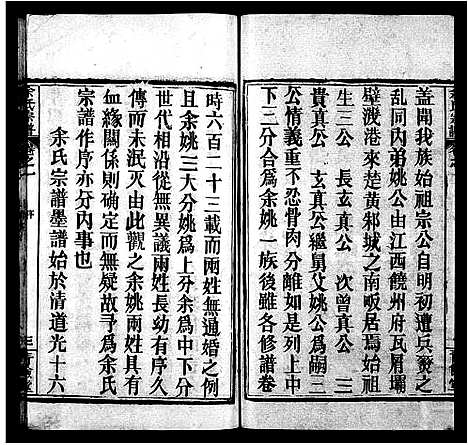 蓋聞我族始祖宗公自明初遭兵燹之
亂同內弟姚公由江西饒州府瓦屑壩
壁溅港來楚黃邾城之南畈居焉始祖
生三公　長玄真公　次曾真公　三
貴真公　玄真公繼舅父姚公為嗣三
公情義重不忍骨肉分離以余姓為中
下二分合為余姚一族後雖各修譜卷
時六百二十三載而兩姓無通婚之例
且余姚三大分姚為上分余為中下分
世代相從無異議兩姓長幼有序久
傳而未泯灭由此觀之余姚兩姓具有
血緣關係則确定而無疑故予為余氏
宗譜作序亦分內事也
余氏宗譜墨譜始於清道光十六
余氏宗譜